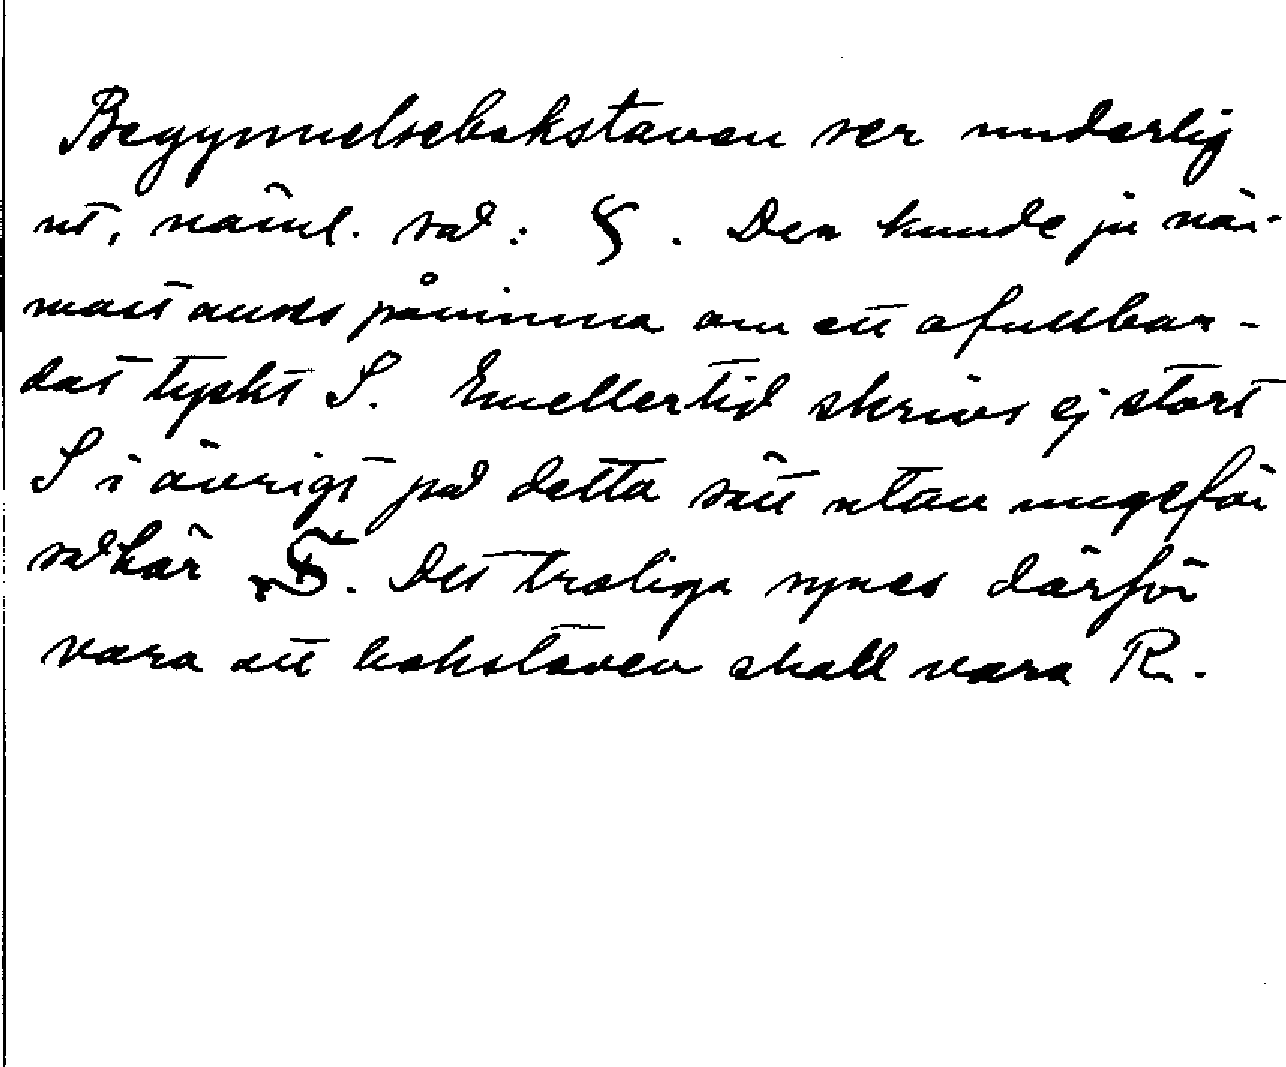 Begynnelsebokstaven ser underlig
ut, näml. så: §. Den kunde ju när-
mast anses påminna om ett ofullbor-
dat tyskt S. Emellertid skrivs ej stort
S i övrigt på detta sätt utan ungefär
såhär S. Det troliga synes därför
vara att bokstaven skall vara R.